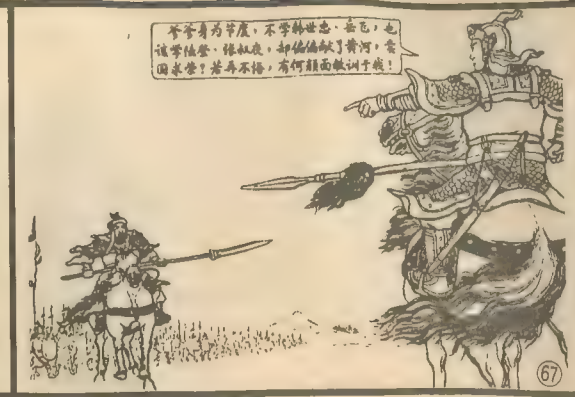 爹爹身为节度，不学韩世忠、岳飞，也
该学陆登、张叔夜，却偏偏献了黄河，卖
国求荣？若再不悟，有何颜面教训于我！
67